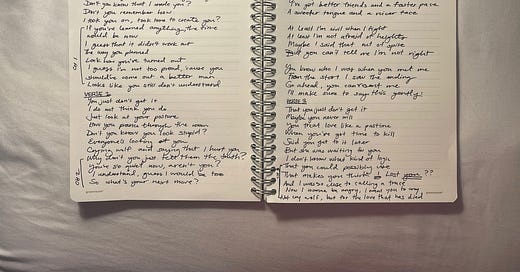 Don't you know that I made you?
Don't you remember how
I took you on, took time to create you?
If you've learned anything, the time
would be now
I guess that it didn't work out
The way you planned
Look how you've turned out
I guess I'm not too proud, 'cause you
should've come out a better man
Looks like you still don't understand
CH 1
VERSE 2
You just don't get it
I do not think you do
Just look at your posture
How you parade through the room
Don't you know you look stupid?
Everyone's looking at you
Cryin' wolf and saying that I hurt you
Why don't you just tell them the truth?
You're so quiet now, aren't you?
I understand, guess I would be too
So what's your next move?
CH 2
You got better friends and a faster pace
A sweeter tongue and a nicer face
At least I'm civil when I fight
At least I'm not afraid of heights
Maybe I said that out of spite
But you can't tell me I'm not right
You knew who I was when you met me
From the start I saw the ending
Go ahead, you can resent me
I'll make sure to say this gently!
VERSE 3
That you just don't get it
Maybe you never will
You treat love like a pastime
When you've got time to kill
Said you'd get to it later
But she was waiting for you
I don't know what kind of logic
That you could possibly use
That makes you think Lost you??
And I was so close to calling a truce
Now I wanna be angry, I want you to
cry wolf, but for the love that has died